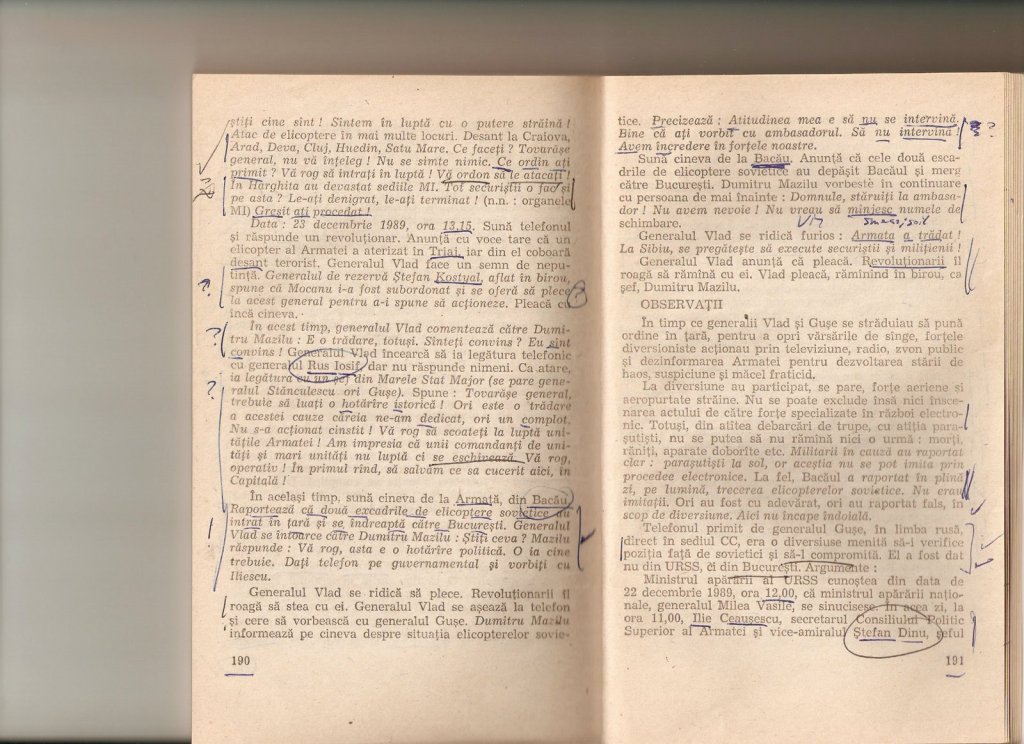 știți cine sînt ! Sîntem în luptă cu o putere străină !
Atac de elicoptere în mai multe locuri. Desant la Craiova,
Arad, Deva, Cluj, Huedin, Satu Mare. Ce faceți ? Tovarășe
general, nu vă înțeleg ! Nu se simte nimic. Ce ordin ați
primit ? Vă rog să intrați în luptă ! Vă ordon să le atacați !
În Harghita au devastat sediile MI. Tot securiștii o fac și
pe asta ? Le-ați denigrat, le-ați terminat ! (n.n. : organele
MI) Greșit ați procedat !
Data : 23 decembrie 1989, ora 13,15. Sună telefonul
și răspunde un revoluționar. Anunță cu voce tare că un
elicopter al Armatei a aterizat în Triaj, iar din el coboară
desant terorist. Generalul Vlad face un semn de nepu-
tință. Generalul de rezervă Ștefan Kostyal, aflat în birou,
spune că Mocanu i-a fost subordonat și se oferă să plece
la acest general pentru a-i spune să acționeze. Pleacă cu
încă cineva.
În acest timp, generalul Vlad comentează către Dumi-
tru Mazilu : E o trădare, totuși. Sînteți convins ? Eu sînt
convins ! Generalul Vlad încearcă să ia legătura telefonic
cu generalul Rus Iosif, dar nu răspunde nimeni. Ca atare,
ia legătura cu un șef din Marele Stat Major (se pare gene-
ralul Stănculescu ori Gușe). Spune : Tovarășe general,
trebuie să luați o hotărîre istorică ! Ori este o trădare
a acestei cauze căreia ne-am dedicat, ori un complot.
Nu s-a acționat cinstit ! Vă rog să scoateți la luptă uni-
tățile Armatei ! Am impresia că unii comandanți de uni-
tăți și mari unități nu luptă ci se eschivează. Vă rog,
operativ ! În primul rînd, să salvăm ce sa cucerit aici, în
Capitală !
În același timp, sună cineva de la Armată, din Bacău.
Raportează că două excadrile de elicoptere sovietice au
intrat în țară și se îndreaptă către București. Generalul
Vlad se întoarce către Dumitru Mazilu : Știți ceva ? Mazilu
răspunde : Vă rog, asta e o hotărîre politică. O ia cine
trebuie. Dați telefon pe guvernamental și vorbiți cu
Iliescu.
Generalul Vlad se ridică să plece. Revoluționarii îl
roagă să stea cu ei. Generalul Vlad se așează la telefon
și cere să vorbească cu generalul Gușe. Dumitru Mazilu
informează pe cineva despre situația elicopterelor sovie-
190
tice. Precizează : Atitudinea mea e să nu se intervină.
Bine că ați vorbit cu ambasadorul. Să nu intervină !
Avem încredere în forțele noastre.
Sună cineva de la Bacău. Anunță că cele două esca-
drile de elicoptere sovietice au depășit Bacăul și merg
către București. Dumitru Mazilu vorbește în continuare
cu persoana de mai înainte : Domnule, stăruiți la ambasa-
dor ! Nu avem nevoie ! Nu vreau să minjesc numele de
schimbare.
Generalul Vlad se ridică furios : Armata a trădat !
La Sibiu, se pregătește să execute securiștii și milițienii !
Generalul Vlad anunță că pleacă. Revoluționarii îl
roagă să rămînă cu ei. Vlad pleacă, rămînind în birou, ca
șef, Dumitru Mazilu.
OBSERVAȚII
În timp ce generalii Vlad și Gușe se străduiau să pună
ordine în țară, pentru a opri vărsările de sînge, forțele
diversioniste acționau prin televiziune, radio, zvon public
și dezinformarea Armatei pentru dezvoltarea stării de
haos, suspiciune și măcel fraticid.
La diversiune au participat, se pare, forțe aeriene și
aeropurtate străine. Nu se poate exclude însă nici însce-
narea actului de către forțe specializate în război electro-
nic. Totuși, din atîtea debarcări de trupe, cu atîția para-
șutiști, nu se putea să nu rămînă nici o urmă : morți,
răniți, aparate doborîte etc. Militarii în cauză au raportat
clar : parașutiști la sol, or aceștia nu se pot imita prin
procedee electronice. La fel, Bacăul a raportat în plină
zi, pe lumină, trecerea elicopterelor sovietice. Nu erau
imitații. Ori au fost cu adevărat, ori au raportat fals, în
scop de diversiune. Aici nu încape îndoială.
Telefonul primit de generalul Gușe, în limba rusă,
direct în sediul CC, era o diversiune menită să-i verifice
poziția față de sovietici și să-l compromită. El a fost dat
nu din URSS, ci din București. Argumente :
Ministrul apărării al URSS cunoștea din data de
22 decembrie 1989, ora 12,00, că ministrul apărării națio-
nale, generalul Milea Vasile, se sinucisese. În acea zi, la
ora 11,00, Ilie Ceaușescu, secretarul Consiliului Politic
Superior al Armatei și vice-amiralul Ștefan Dinu, șeful
191